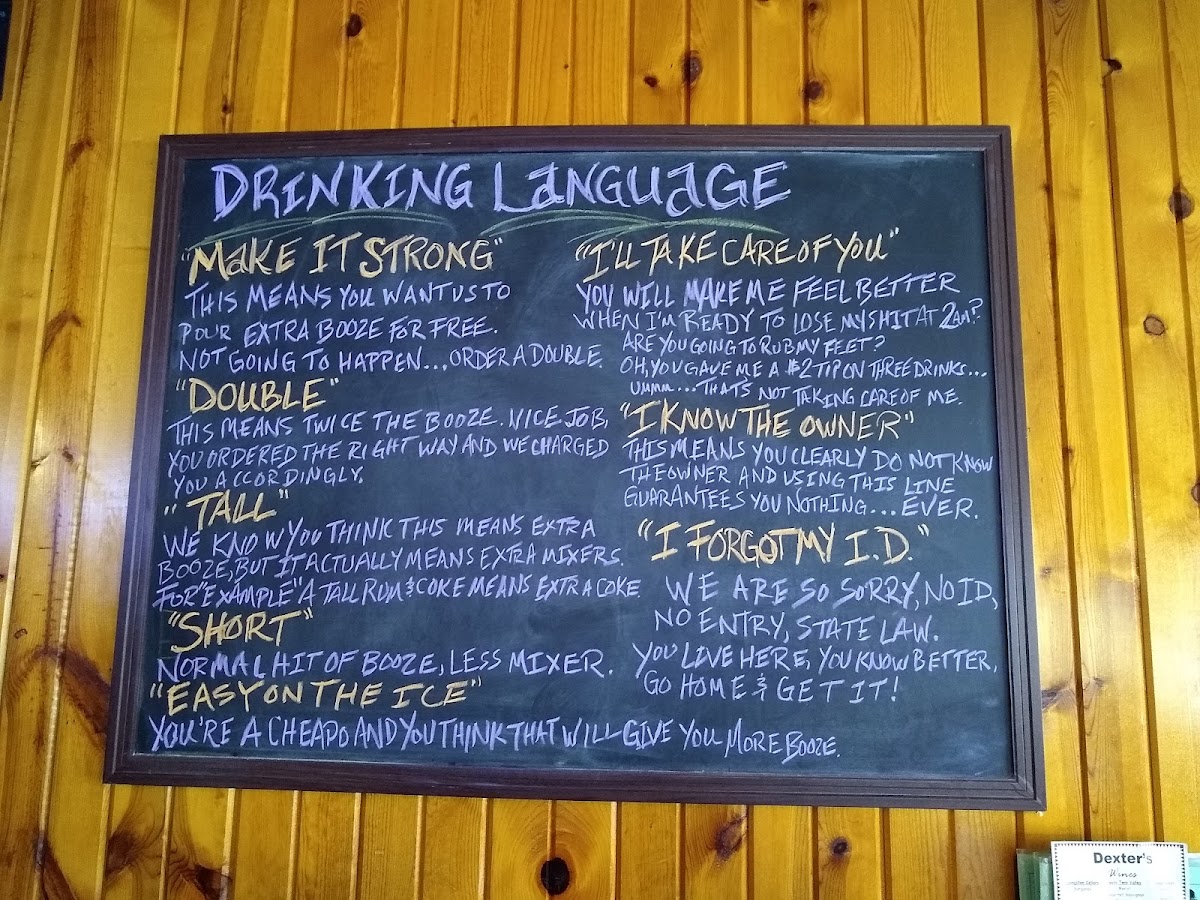 DRINKING LANGUAGE
"MAKE IT STRONG"
THIS MEANS YOU WANT US TO
POUR EXTRA BOOZE FOR FREE.
NOT GOING TO HAPPEN...ORDER A DOUBLE.
"DOUBLE"
THIS MEANS TWICE THE BOOZE. NICE JOB,
YOU ORDERED THE RIGHT WAY AND WE CHARGED
YOU ACCORDINGLY.
"TALL"
WE KNOW YOU THINK THIS MEANS EXTRA
BOOZE, BUT IT ACTUALLY MEANS EXTRA MIXERS.
FOR EXAMPLE "A TALL RUM & COKE MEANS EXTRA COKE
"SHORT"
NORMAL HIT OF BOOZE, LESS MIXER.
"EASY ON THE ICE"
YOU'RE A CHEAPO AND YOU THINK THAT WILL GIVE YOU MORE BOOZE.
"I'LL TAKE CARE OF YOU"
YOU WILL MAKE ME FEEL BETTER
WHEN I'M READY TO LOSE MY SHIT AT 2AM?
ARE YOU GOING TO RUB MY FEET?
OH, YOU GAVE ME A $2 TIP ON THREE DRINKS...
UMMM...THATS NOT TAKING CARE OF ME.
"I KNOW THE OWNER"
THIS MEANS YOU CLEARLY DO NOT KNOW
THE OWNER AND USING THIS LINE
GUARANTEES YOU NOTHING...EVER.
"I FORGOT MY I.D."
WE ARE SO SORRY, NO ID,
NO ENTRY, STATE LAW.
YOU LIVE HERE, YOU KNOW BETTER,
GO HOME & GET IT!
Dexter's
Wines